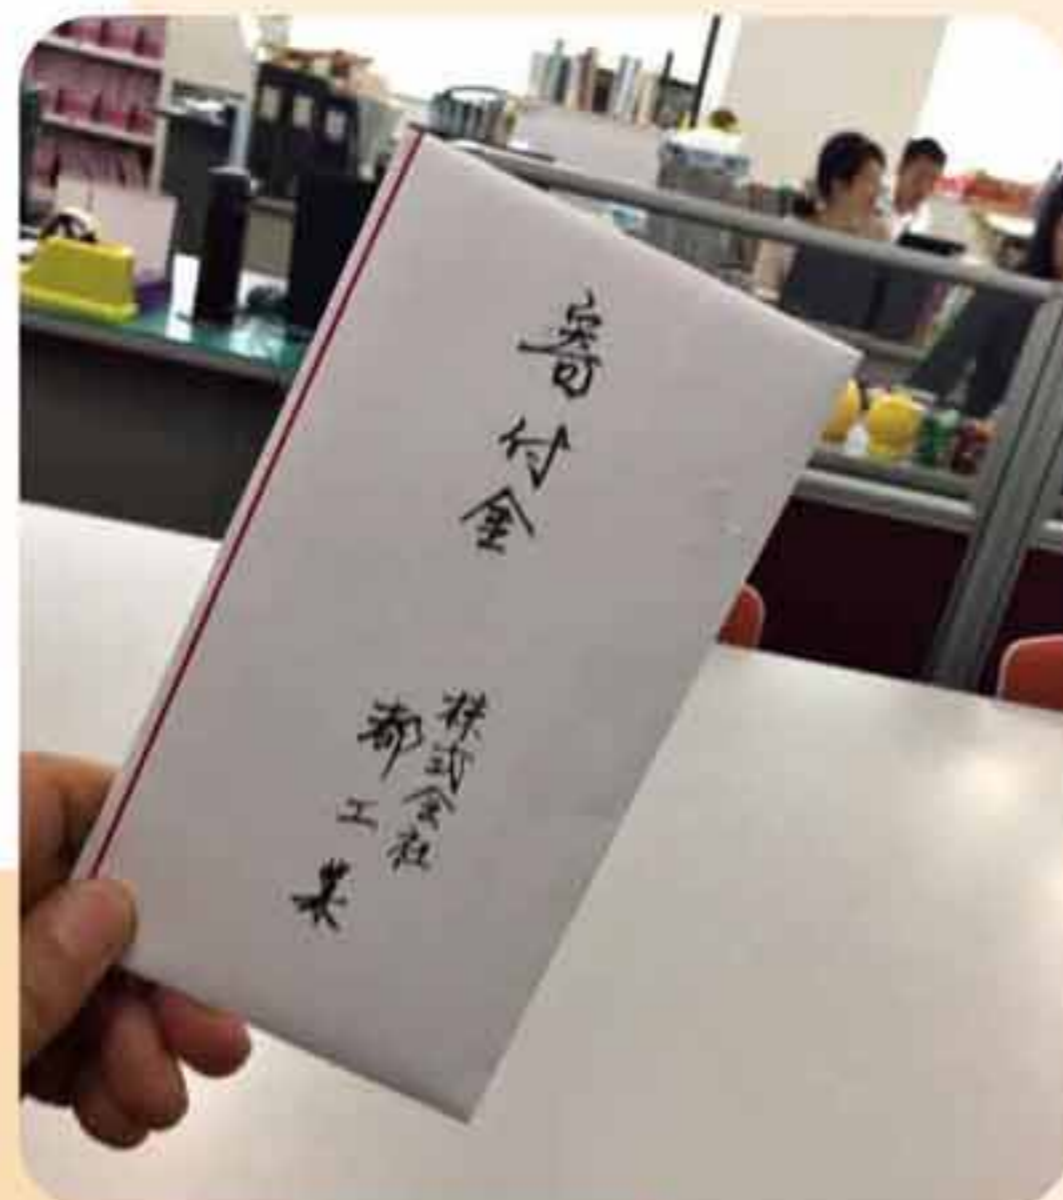 寄付金
株式会社
都工業